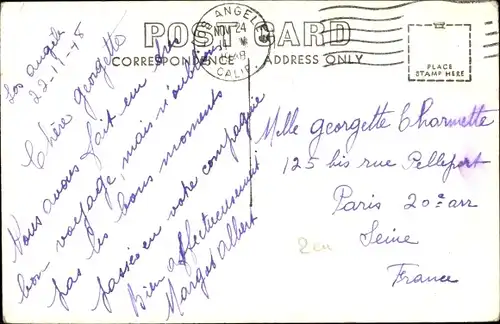 POST CARD
CORRESPONDENCE
ADDRESS ONLY
PLACE
STAMP HERE
ANGELES
NOV 24
CALIF.
Los Angeles
22-11-48
Chère Georgette
Nous avons fait un très
bon voyage, mais n'oublions
pas les bons moments
passés en votre compagnie
Bien affectueusement
Margot Albert
Mlle Georgette Charmette
125 bis rue Pelleport
Paris 20e arr
Seine
France